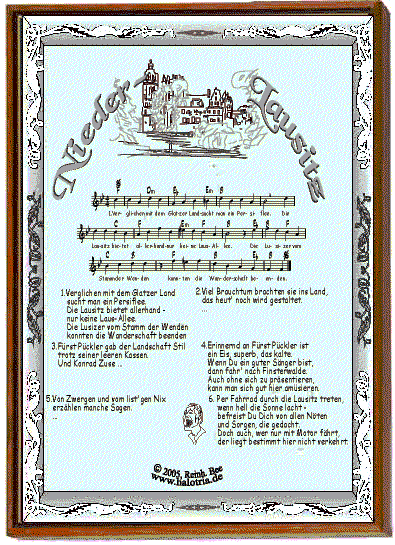 Nieder-
Lausitz
B Dm Eb Em B
1.Ver-glichen mit dem Glatzer Land sucht man ein Per-si-flee. Die
C F Em F B F
Lausitz bietet allerhand-nur keine Laus-Allee. Die Lusizer vom
C B F C F B B
Stamm der Wenden kannten die Wanderschaft beenden.
1.Verglichen mit dem Glatzer Land
sucht man ein Persiflee.
Die Lausitz bietet allerhand -
nur keine Laus-Allee.
Die Lusizer vom Stamm der Wenden
kannten die Wanderschaft beenden
2.Viel Brauchtum brachten sie ins Land,
das heut' noch wird gestaltet.
...
3.Fürst Pückler gab der Landschaft Stil
trotz seiner leeren Kassen.
Und Konrad Zuse ...
4.Erinnernd an Fürst Pückler ist
ein Eis, superb, das kalte.
Wenn Du ein guter Sänger bist,
dann fahr' nach Finsterwalde.
Auch ohne sich zu präsentieren,
kann man sich gut hier amüsieren.
5.Von Zwergen und vom list'gen Nix
erzählen manche Sagen.
...
6. Per Fahrrad durch die Lausitz treten,
wenn hell die Sonne lacht -
befreist Du Dich von allen Nöten
und Sorgen, die gedacht.
Doch auch, wer nur mit Motor fährt,
der liegt bestimmt hier nicht verkehrt.
© 2005, Reinh. Bee
www.halotria.de